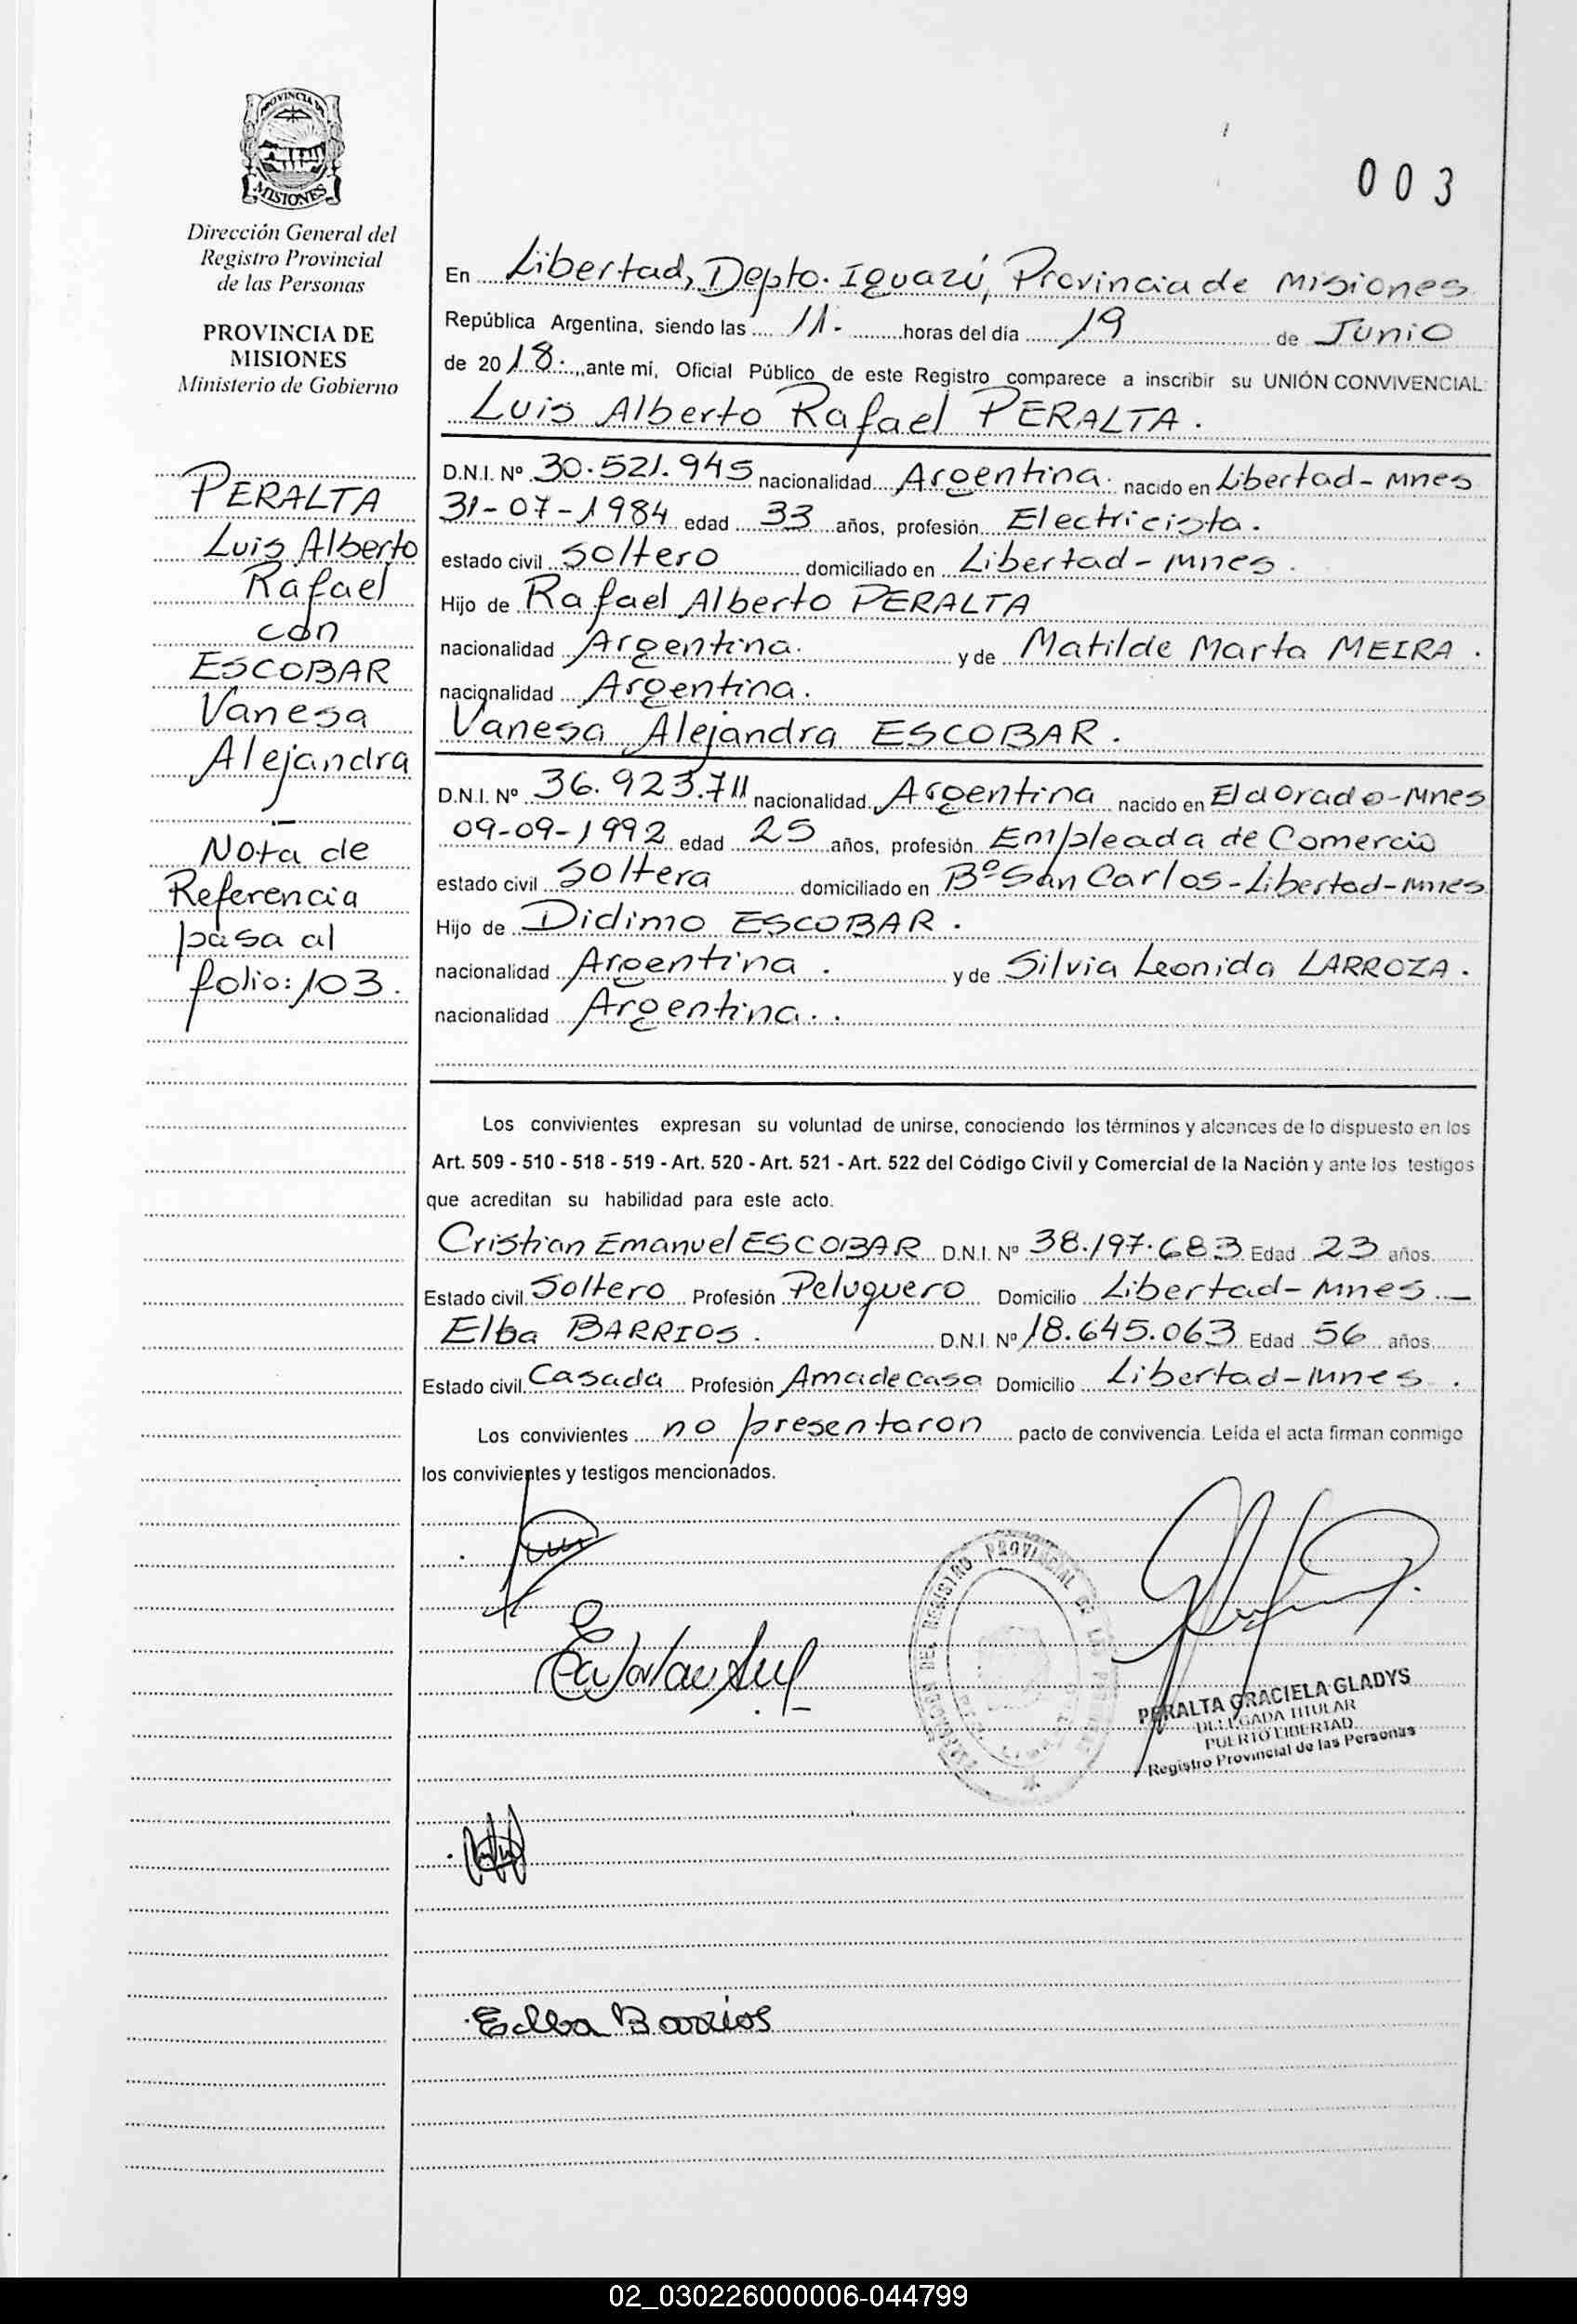 PROVINCIA DE
MISIONES
Dirección General del
Registro Provincial
de las Personas
PROVINCIA DE
MISIONES
Ministerio de Gobierno
PERALTA
Luis Alberto
Rafael
con
ESCOBAR
Vanesa
Alejandra
Nota de
Referencia
pasa al
folio: 103.
003
En Libertad, Depto. Iguazú, Provincia de Misiones
República Argentina, siendo las 11.- horas del día 19 de Junio
de 2018.- ante mi, Oficial Público de este Registro comparece a inscribir su UNIÓN CONVIVENCIAL:
Luis Alberto Rafael PERALTA.
D.N.I. Nº 30.521.945 nacionalidad Argentina. nacido en Libertad - Mnes
31-07-1984 edad 33 años, profesión Electricista.
estado civil Soltero domiciliado en Libertad - Mnes.
Hijo de Rafael Alberto PERALTA
nacionalidad Argentina. y de Matilde Marta MEIRA.
nacionalidad Argentina.
Vanesa Alejandra ESCOBAR.
D.N.I. Nº 36.923.711 nacionalidad Argentina nacido en Eldorado-Mnes
09-09-1992 edad 25 años, profesión Empleada de Comercio
estado civil Soltera domiciliado en Bº San Carlos - Libertad - Mnes
Hijo de Didimo ESCOBAR.
nacionalidad Argentina. y de Silvia Leonida LARROZA.
nacionalidad Argentina..
Los convivientes expresan su voluntad de unirse, conociendo los términos y alcances de lo dispuesto en los
Art. 509 - 510 - 518 - 519 - Art. 520 - Art. 521 - Art. 522 del Código Civil y Comercial de la Nación y ante los testigos
que acreditan su habilidad para este acto.
Cristian Emanuel ESCOBAR D.N.I. Nº 38.197.683 Edad 23 años
Estado civil Soltero Profesión Peluquero Domicilio Libertad - Mnes.-
Elba BARRIOS. D.N.I. Nº 18.645.063 Edad 56 años
Estado civil Casada Profesión Ama de casa Domicilio Libertad - Mnes.
Los convivientes no presentaron pacto de convivencia. Leída el acta firman conmigo
los convivientes y testigos mencionados.
REGISTRO PROVINCIAL DE LAS PERSONAS
PERALTA GRACIELA GLADYS
DELEGADA TITULAR
PUERTO LIBERTAD
Registro Provincial de las Personas
Elba Barrios
02_030226000006-044799